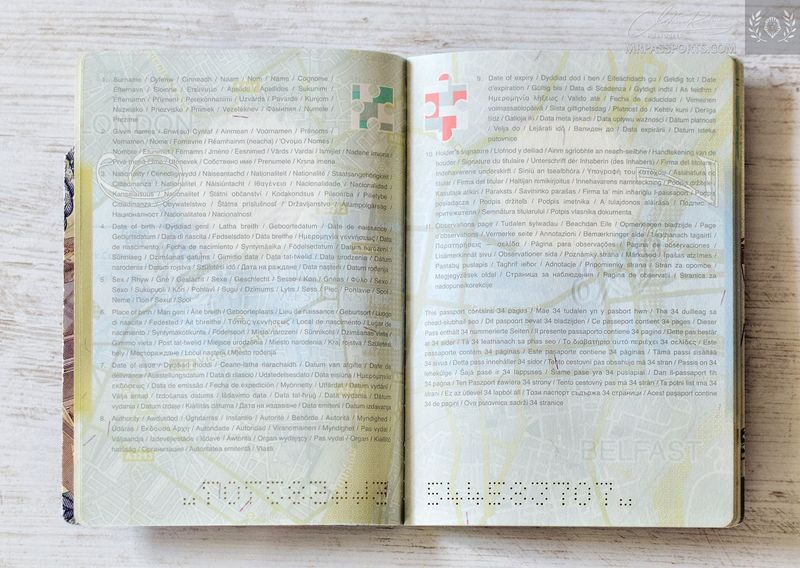 MRPASSPORTS.COM
1. Surname / Cyfenw / Sloinne / Cinneadh / Naam / Nom / Name / Cognome
Efternavn / Sloinne / Επώνυμο / Apelido / Apellidos / Sukunimi
Efternamn / Příjmení / Perekonnanimi / Uzvārds / Pavardė / Kunjom
Nazwisko / Priezvisko / Priimek / Vezetéknév / Фамилия / Nume
Prezime
2. Given names / Enw(au) Cyntaf / Ainmean / Voornamen / Prénoms
Vornamen / Nome / Fornavne / Réamhainm (neacha) / Όνομα / Nomes
Nombre / Etunimet / Förnamn / Jméno / Eesnimed / Vārds / Vardai / Ismijiet / Nadane Imiona
3. Nationality / Cenedligrwydd / Nàiseantachd / Nationaliteit / Nationalité / Staatsangehörigkeit
Cittadinanza / Nationalitet / Náisiúntacht / Ιθαγένεια / Nacionalidade / Nacionalidad
Kansalaisuus / Nationalitet / Státní občanství / Kodakondsus / Pilsonība / Pilietybė
Ċittadinanza / Obywatelstwo / Štátne príslušnosť / Državljanstvo / Állampolgárság
Националност / Nationalitatea / Nacionalnost
4. Date of birth / Dyddiad geni / Latha breith / Geboortedatum / Date de naissance
Geburtsdatum / Data di nascita / Fødselsdato / Dáta breithe / Ημερομηνία γεννήσεως / Data
de nascimento / Fecha de nacimiento / Syntymäaika / Födelsedatum / Datum narození
Sünniaeg / Dzimšanas datums / Gimimo data / Data tat-twelid / Data urodzenia / Dátum
narodenia / Datum rojstva / Születési idő / Дата на раждане / Data nașterii / Datum rođenja
5. Sex / Rhyw / Gnè / Geslacht / Sexe / Geschlecht / Sesso / Køn / Gnéas / Φύλο / Sexo
Sexo / Sukupuoli / Kön / Pohlaví / Sugu / Dzimums / Lytis / Sess / Płeć / Pohlavie / Spol
Neme / Пол / Sexul / Spol
6. Place of birth / Man geni / Àite breith / Geboorteplaats / Lieu de naissance / Geburtsort / Luogo
di nascita / Fødested / Áit bhreithe / Τόπος γεννήσεως / Local de nascimento / Lugar de
nacimiento / Syntymäkotikunta / Födelseort / Místo narození / Sünnikoht / Dzimšanas vieta
Gimimo vieta / Post tat-twelid / Miejsce urodzenia / Miesto narodenia / Kraj rojstva / Születési
hely / Месторождение / Locul nașterii / Mjesto rođenja
7. Date of issue / Dyddiad rhoddi / Ceann-latha riarachaidh / Datum van afgifte / Date de
délivrance / Ausstellungsdatum / Data di rilascio / Udstedelsesdato / Dáta eisiúna / Ημερομηνία
εκδόσεως / Data de emissão / Fecha de expedición / Myönnetty / Utfärdat den / Datum vydání
Välja antud / Izdošanas datums / Išdavimo data / Data tal-ħruġ / Data wydania / Dátum
vydania / Datum izdaje / Kiállítás dátuma / Дата на издаване / Data emiterii / Datum izdavanja
8. Authority / Awdurdod / Ùghdarras / Instantie / Autorité / Behörde / Autorità / Myndighed
Údarás / Εκδούσα Αρχή / Autoridade / Autoridad / Viranomainen / Myndighet / Pas vydal
Väljaandja / Izdevējiestāde / Išdavė / Awtorità / Organ wydający / Pas vydal / Organ / Kiállító
hatóság / Организация / Autoritatea emitentă / Vlasti
9. Date of expiry / Dyddiad dod i ben / Geldig tot / Date
d'expiration / Gültig bis / Data di Scadenza / Gyldigt indtil / As feidhm
Ημερομηνία λήξεως / Válido até / Fecha de caducidad / Viimeinen
voimassaolopäivä / Sista giltighetsdag / Platnost do / Kehtiv kuni / Derīga
līdz / Galioja iki / Data meta jiskadi / Data upływu ważności / Dátum platnosti
Velja do / Lejárati idő / Валиден до / Data expirării / Datum isteka
putovnice
10. Holder's signature / Llofnod y deiliad / Ainm sgrìobhte an neach-seilbhe / Handtekening van de
houder / Signature du titulaire / Unterschrift der Inhaberin (des Inhabers) / Firma del titolare
Indehaverens underskrift / Síniú an tsealbhóra / Υπογραφή του κατόχου / Assinatura do
titular / Firma del titular / Haltijan nimikirjoitus / Innehavarens namnteckning / Podpis držitele
Kasutaja allkiri / Paraksts / Savininko parašas / Firma ta' min inħariġlu l-passaport / Podpis
posiadacza / Podpis držiteľa / Podpis imetnika / A tulajdonos aláírása / Подпис на
притежателя / Semnătura titularului / Potpis vlasnika dokumenta
11. Observations page / Tudalen sylwadau / Beachdan Eile / Opmerkingen bladzijde / Page
d'observations / Vermerke seite / Annotazioni / Bemærkninger side / Leathanach tagairtí
Παρατηρήσεις – σελίδα / Página para observações / Página de observaciones
Lisämerkinnät sivu / Observationer sida / Poznámky stránka / Märkused / Īpašas atzīmes
Pastabų puslapis / Tagħrif ieħor / Adnotacje / Pripomienky strana / Stran za opombe
Megjegyzések oldal / Страница за наблюдения / Pagina de observații / Stranica za
nadopune/korekcije
This passport contains 34 pages / Mae 34 tudalen yn y pasbort hwn / Tha 34 duilleag sa
chead-siubhail seo / Dit paspoort bevat 34 bladzijden / Ce passeport contient 34 pages / Dieser
Pass enthält 34 nummerierte Seiten / Il presente passaporto contiene 34 pagine / Dette pas består af
34 sider / Tá 34 leathanach sa phas seo / Το διαβατήριο αυτό περιέχει 34 σελίδες / Este
passaporte contém 34 páginas / Este pasaporte contiene 34 páginas / Tämä passi sisältää
34 sivua / Detta pass innehåller 34 sidor / Tento cestovní pas obsahuje 34 stran / Passis on 34
lehekülge / Šajā pasē ir 34 lappuses / Šiame pase yra 34 puslapiai / Dan il-passaport fih
34 paġna / Ten Paszport zawiera 34 strony / Tento cestovný pas má 34 strán / Ta potni list ima 34
strani / Ez az útlevél 34 lapból áll / Този паспорт съдържа 34 страници / Acest pașaport conține
34 de pagini / Ova putovnica sadrži 34 stranice
BELFAST